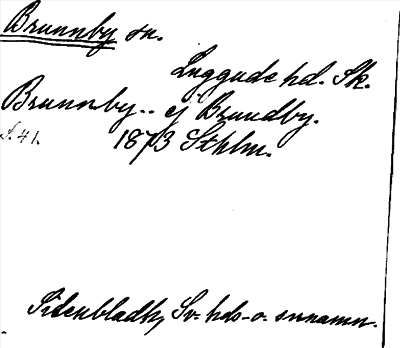 Brunnby sn.
Luggude hd. Sk.
Brunnby.. ej Brundby.
S. 41. 1873 Sthlm.
Sidenbladh, Sv. hds- o. sn namn.